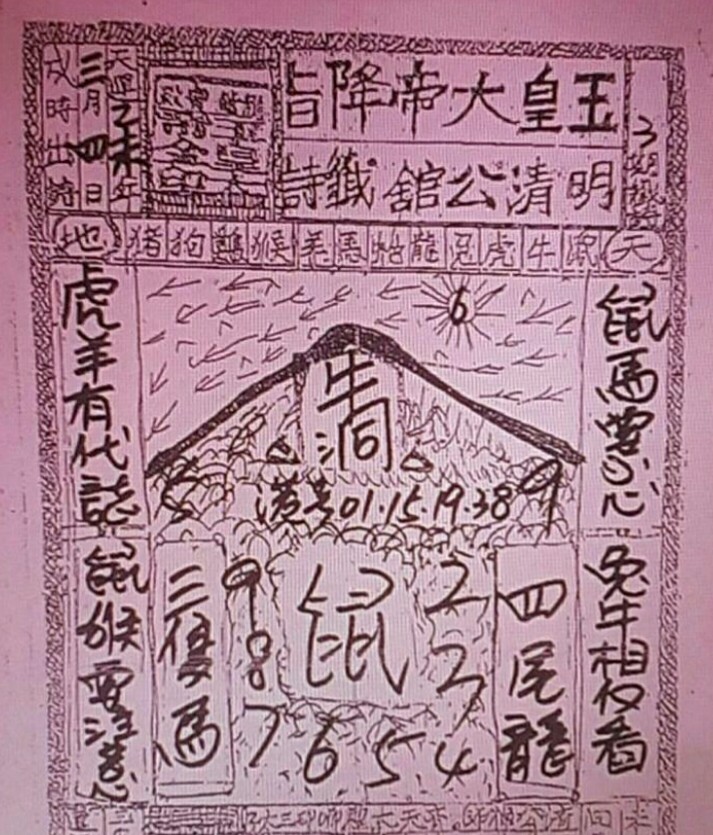 玉皇大帝降旨
明清公舘籤詩
3期
天運乙未年
三月四日
戌時出詩
天鼠牛虎兔龍馬羊猴鷄狗猪地
鼠馬要小心
兔牛相依看
虎羊有代誌
鼠猴要注意
6
牛
洞
5
9
港号01.15.19.38
四尾龍
鼠
2
3
4
5
6
7
8
9
三隻馬